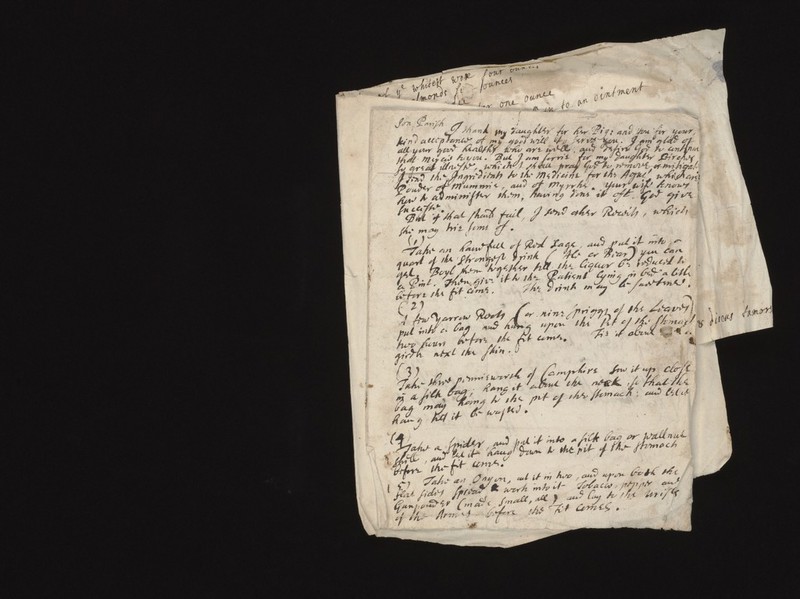 of yͤ whitest wax four ounces
almonds six ounces
for one ounce
to an ointment
Son Parish
I thank my daughter for her Pigs and you for your
kind acceptance of my good will to serve you. I am glad of
all your good healths who are well, and desire God to continue
that mercie to you. But I am sorrie for my daughter
by great illnesse, which I shall pray God to remove, or mitigate.
I send the Ingredients to the Medicine for the Ague, which are
Powder of Mummie, and of Myrrhe. Your wife knows
how to administer them, having done it oft. God give
successe.
But if that should fail, I send other Receits, which
she may trie some of.
(1)
Take an handfull of Red Sage, and put it into a
quart of the strongest drink (Ale or Beer) you can
get. Boyl them together till the liquor be reduced to
a Pint. Then give it to the Patient lying in bed a little
before the fit come. The drink may be sweetned.
(2)
A few Yarrow Roots (or nine spriggs of the Leaves)
put into a bag and hung upon the pit of the stomach
two hours before the fit comes. Tie it about
girdle next the skin.
(3)
Take three penniworth of Camphire sow it up close
in a silk bag, hang it about the neck so that the
bag may hang to the pit of the stomach: and let it
hang till it be wasted.
(4
Take a spider, and put it into a silk bag or wallnut
shell, and let it hang down to the pit of the stomach
before the fit comes.
(5) Take an Onyon, cut it in two, and upon both the
flat sides spread & work into it Tobacco, pepper and
Gunpowder (made small, all) and lay to the wrists
of the Armes before the fit comes.